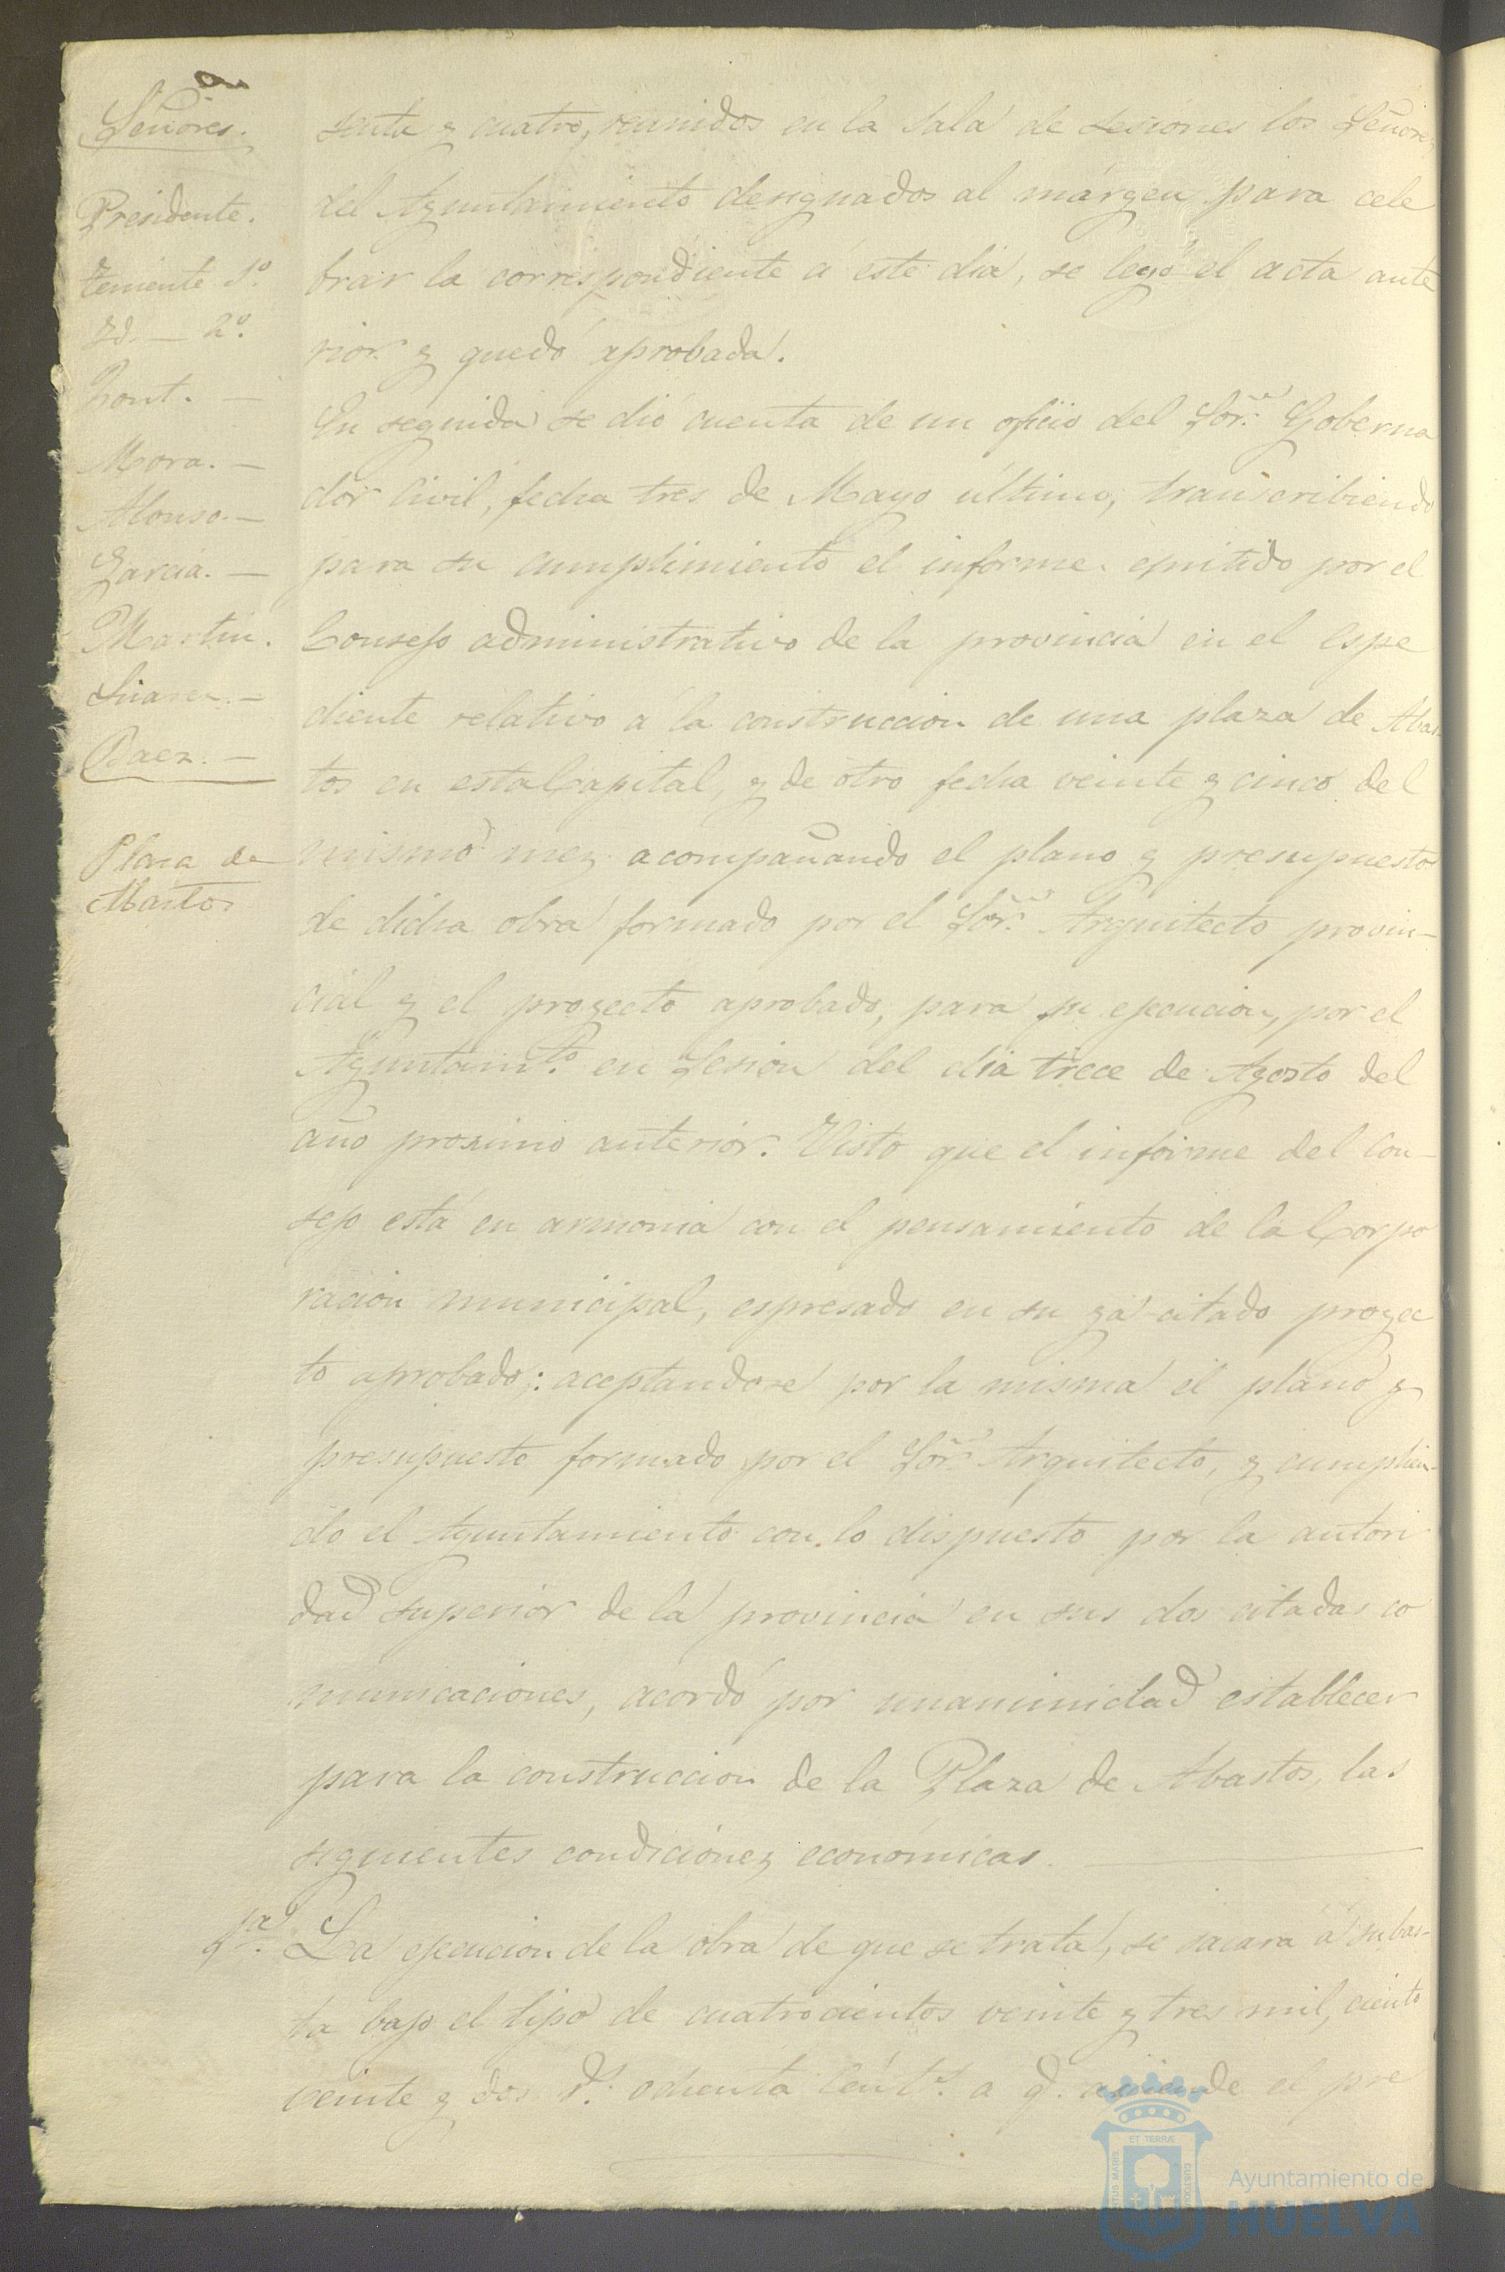 Señores.
Presidente.
Teniente 1º.
Yd. — 2º.
Pont. —
Mora. —
Alonso. —
Garcia. —
Martin.
Suarez. —
Baez. —
Plaza de
Abastos
senta y cuatro, reunidos en la Sala de sesiones los Señores
del Ayuntamiento designados al márgen para cele
brar la correspondiente á este dia, se leyó el acta ante
rior y quedó aprobada.
En seguida se dió cuenta de un oficio del Sor. Goberna
dor Civil, fecha tres de Mayo último, transcribiendo
para su cumplimiento el informe emitido por el
Consejo administrativo de la provincia en el espe
diente relativo á la construccion de una plaza de Abas
tos en esta Capital, y de otro fecha veinte y cinco del
mismo mes acompañando el plano y presupuesto
de dicha obra formado por el Sor. Arquitecto provin-
cial y el proyecto aprobado, para su ejecucion, por el
Ayuntamto. en sesion del dia trece de Agosto del
año proximo anterior. Visto que el informe del Con-
sejo está en armonia con el pensamiento de la Corpo
racion municipal, espresado en su ya citado proyec
to aprobado; aceptandose por la misma el plano y
presupuesto formado por el Sor. Arquitecto, y cumplien-
do el Ayuntamiento con lo dispuesto por la autori
dad superior de la provincia en sus dos citadas co
municaciones, acordó por unanimidad establecer
para la construccion de la Plaza de Abastos, las
siguientes condiciones económicas.
1ª. La ejecucion de la obra de que se trata, se sacará á subas-
ta bajo el tipo de cuatrocientos veinte y tres mil, ciento
veinte y dos rs. ochenta cénts. a q. asciende el pre
ET TERRÆ
Ayuntamiento de
HUELVA